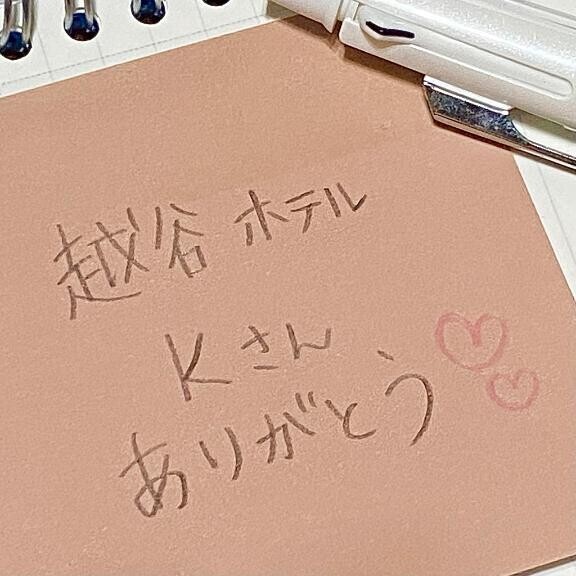 越谷 ホテル
Kさん
ありがとう